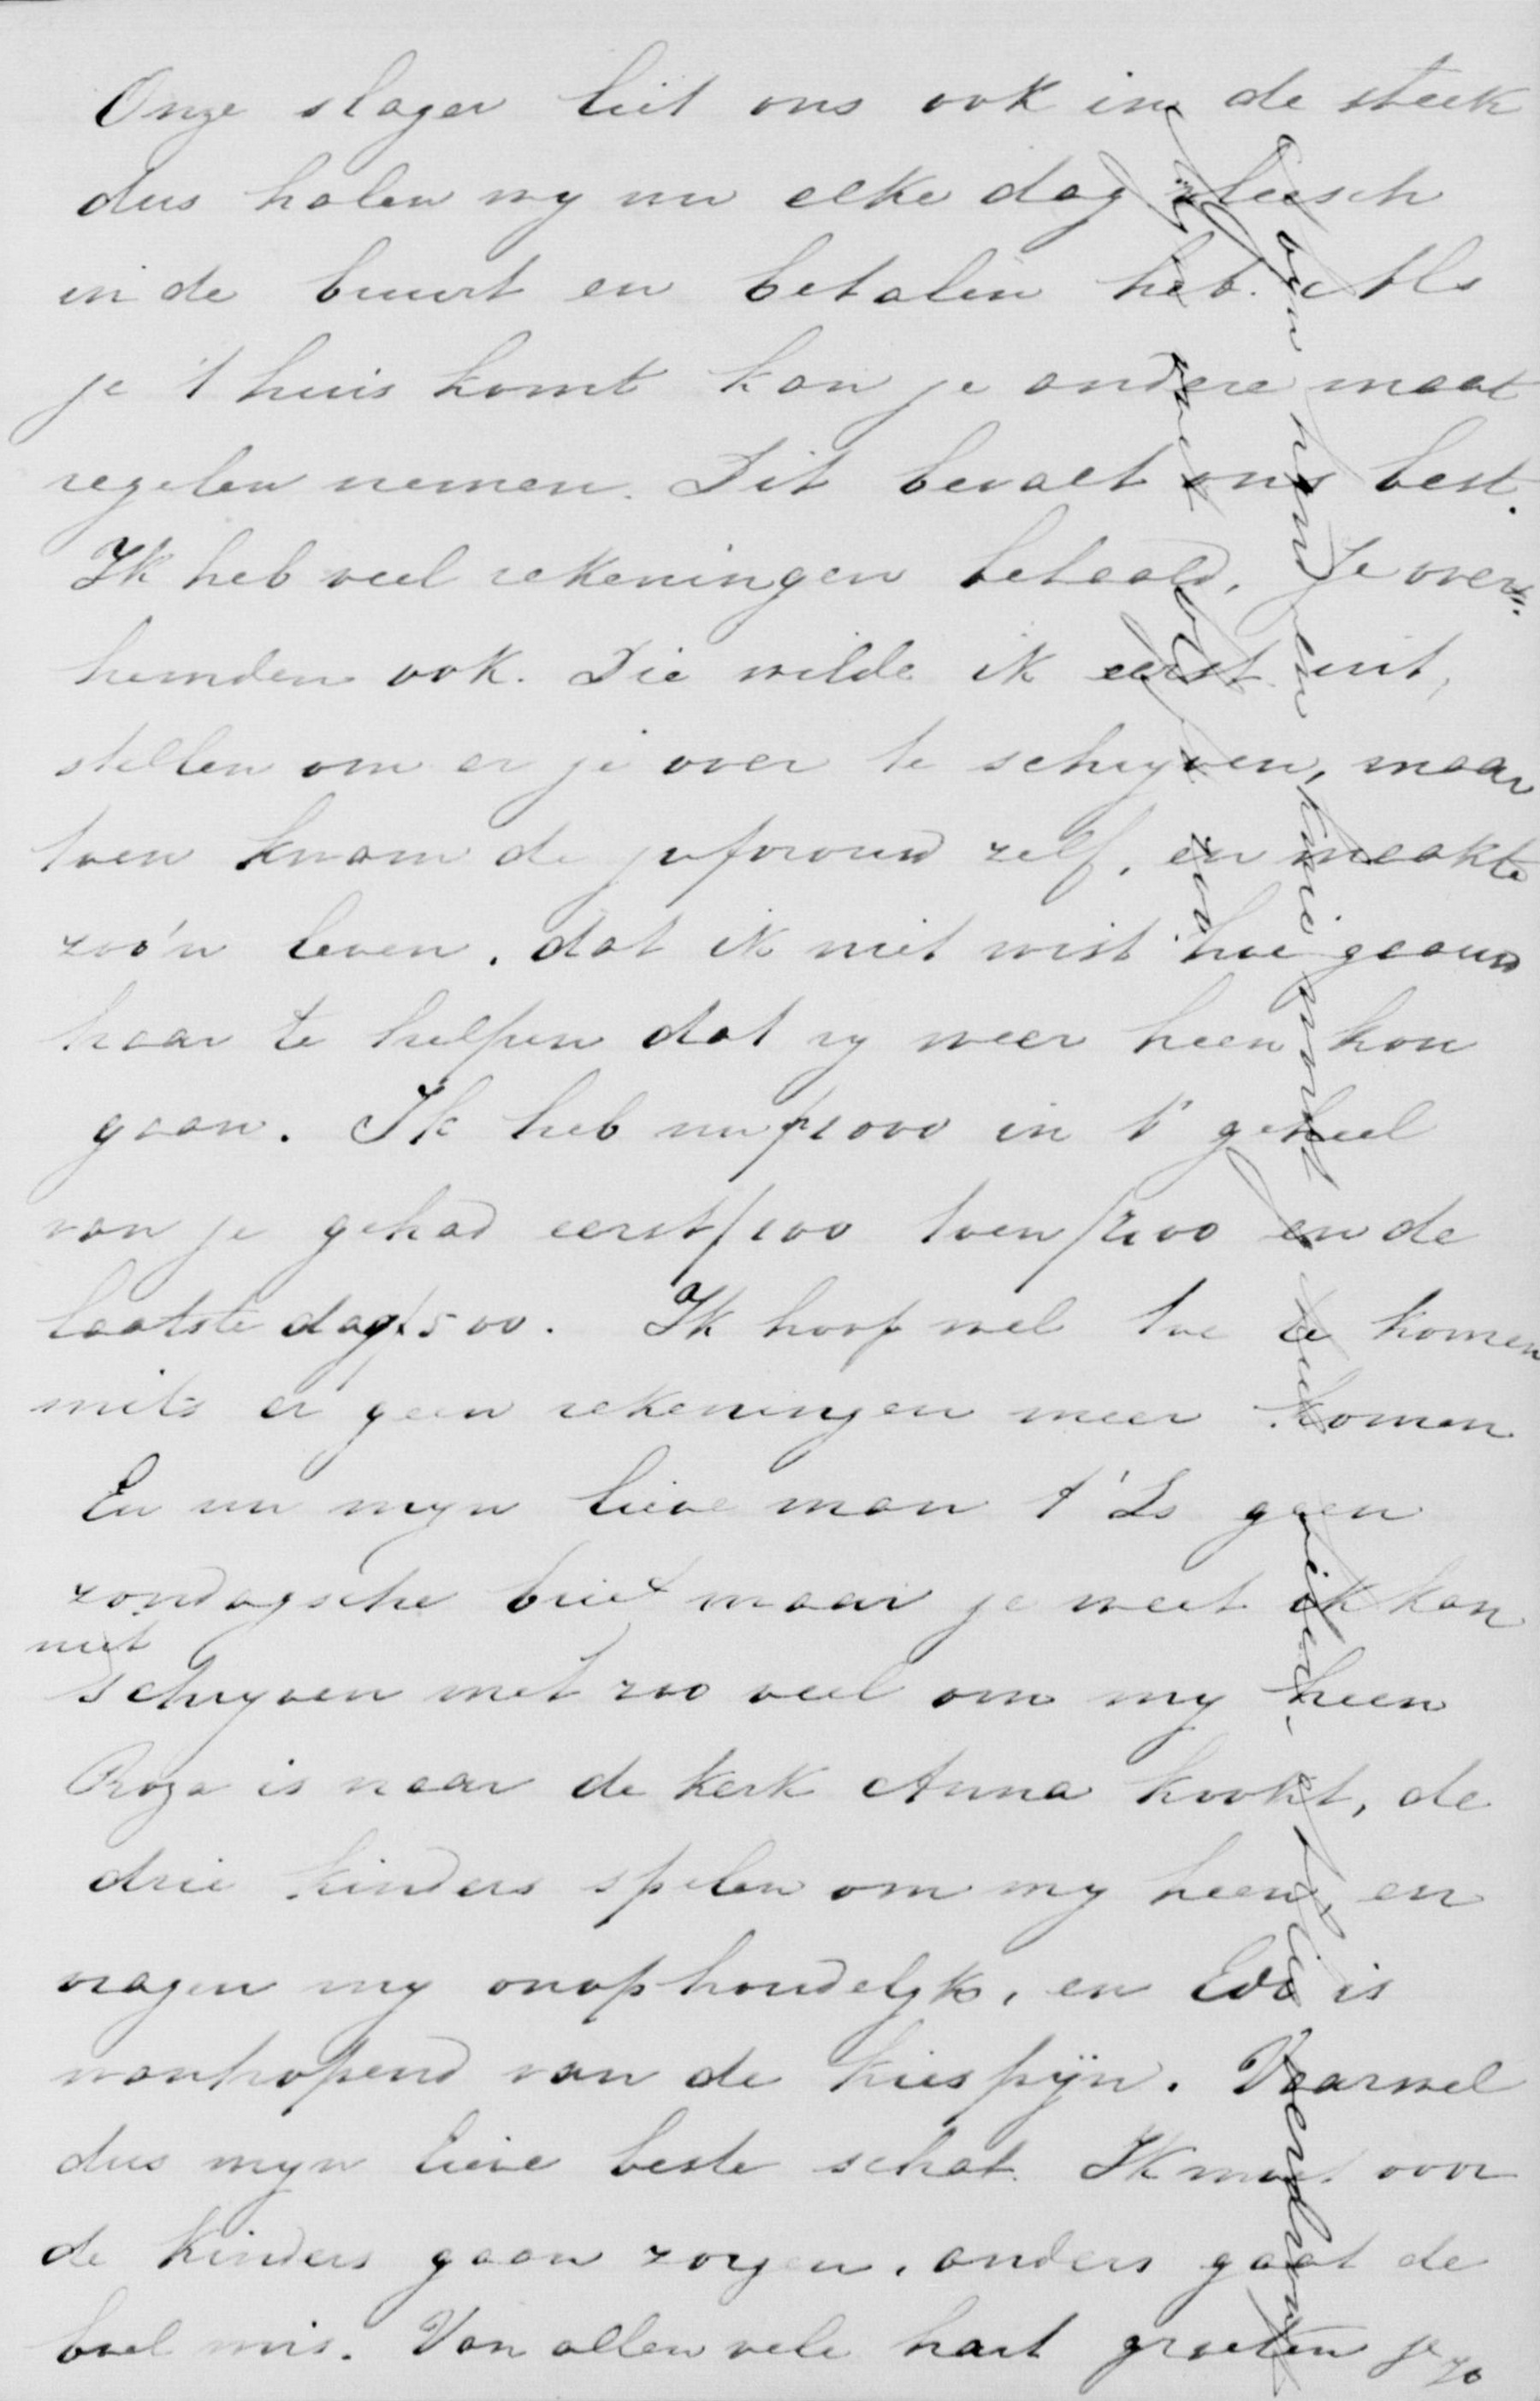 Onze slager liet ons ook in de steek
dus halen wy nu elke dag vleesch
in de buurt en betalen het. Als
je 't huis komt kan je andere maat
regelen nemen. Dit bevalt ons best.
Ik heb veel rekeningen betaald. Je over
hemden ook. Die wilde ik eerst uit,
stellen om er je over te schryven, maar
toen kwam de jufvrouw zelf, en maakte
zoo'n leven, dat ik niet wist hoe gaauw
haar te helpen dat zy weer heen kon
gaan. Ik heb nu ƒ1000 in 't geheel
van je gehad eerst ƒ100 toen ƒ200 en de
laatste dag ƒ500. Ik hoop wel toe te komen
mits er geen rekeningen meer komen
En nu myn lieve man 't Is geen
zondagsche brief maar je weet ik kan
niet
schryven met zoo veel om my heen
Roza is naar de kerk Anna kookt, de
drie kinders spelen om my heen, en
vragen my onophoudelyk, en Edu is
wanhopend van de kiespijn. Vaarwel
dus myn lieve beste schat. Ik moet voor
de kinders gaan zorgen, anders gaat de
boel mis. Van allen vele hart groeten je zo